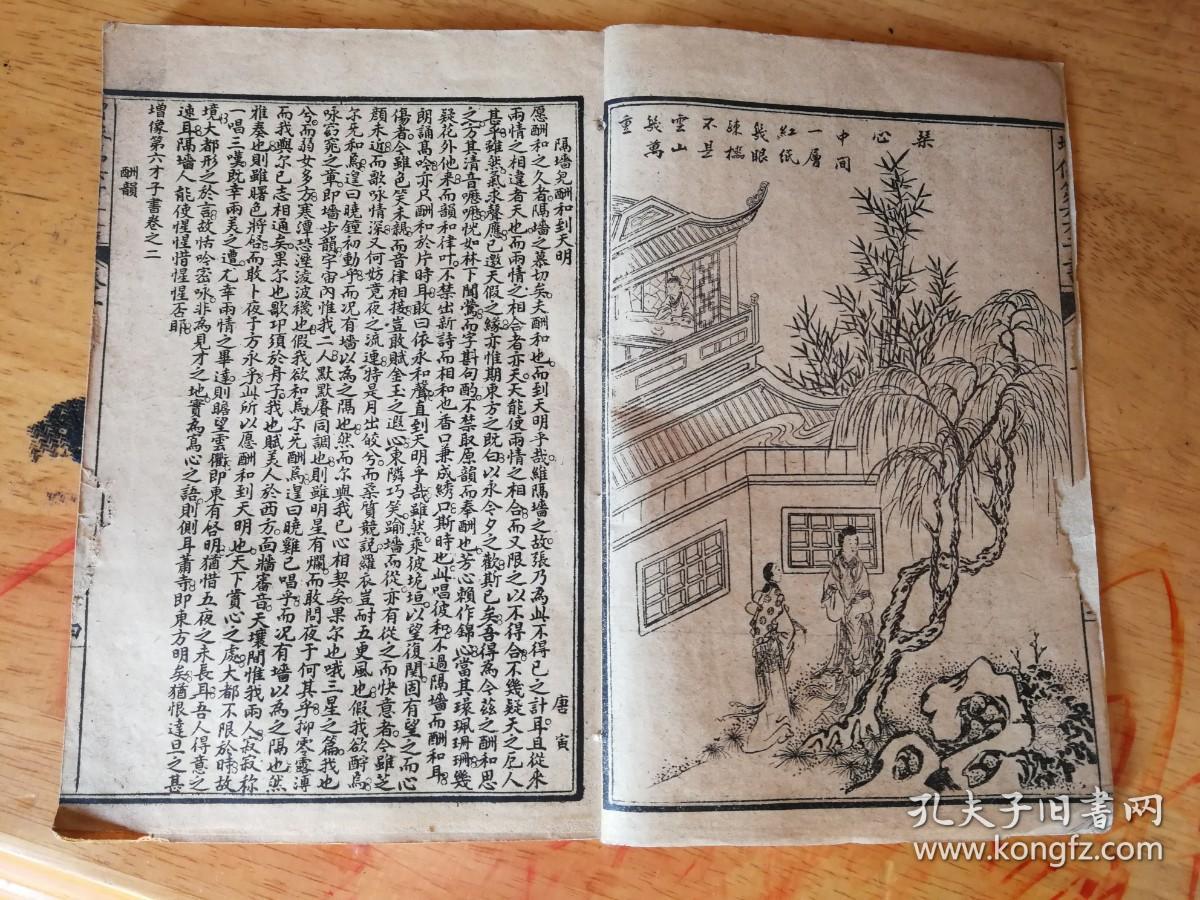 琴心
中間
一層
紅紙
幾眼
疎櫺
不是
雲山
幾萬
重
隔墻兒酬和到天明
唐寅
愿酬和之久者隔墻之慕切矣夫酬和也而到天明乎哉維隔墻之故張乃為此不得已之計耳且從來
兩情之相違者天也而兩情之相合者亦天天能使兩情之相合而又限之以不得合不幾疑天之厄人
甚乎雖然氣求聲應已邀天假之緣亦惟期東方之既白以永今夕之歡斯已矣吾得為今玆之酬和思
之方其清音嚦嚦恍如林下聞鶯而字斟句酌不禁取原韻而奉酬也芳心賴作錦心當其環珮珊珊幾
疑花外他來而韻和律叶不禁出新詩而相和也香口兼成綉口斯時也此唱彼和不過隔墻而酬和耳
朗誦高吟亦只酬和於片時耳敢曰依永和聲直到天明乎哉雖然乘彼垝垣以望復関固有望之而心
傷者今雖色笑未親而音律相接豈敢賦金玉之遐心東隣巧笑踰墻而從亦有從之而快意者今雖芝
顏未近而歌咏情深又何妨竟夜之流連特是月出皎兮而柔質競説羅衣豈耐五更風也假我欲酧烏
尔旡和烏遑曰曉鐘初動乎而况有墻以為之隔也然而尔與我已心相契矣果尔也哦三星之篇我也
咏窈窕之章即墻步韻宇宙內惟我二人默默賡同調也則雖明星有爛而敢問夜子何其乎抑零露漙
兮而弱女多方寒潭恐溼淩波襪也假我欲和烏尔旡酬烏遑曰曉雞已唱乎而况有墻以為之隔也然
而我與尔已志相通矣果尔也歌卬須於舟子我也賦美人於西方面牆審音天壤間惟我兩人寂寂称
雅奏也則雖曙色將啓而敢卜夜子方永乎此所以愿酬和到天明也天下賞心之處大都不限於時故
一唱三嘆既幸兩美之遭尤幸兩情之畢達則瞻望雲衢即東有啓明猶惜五夜之未長耳吾人得意之
境大都形之於言故怙吟密咏非為見才之地實為寫心之語則側耳蕭寺即東方明矣猶恨達旦之甚
速耳隔墻人能使惺惺惜惺惺否耶
增像第六才子書卷之二
酬韻
四
孔夫子旧書网
www.kongfz.com